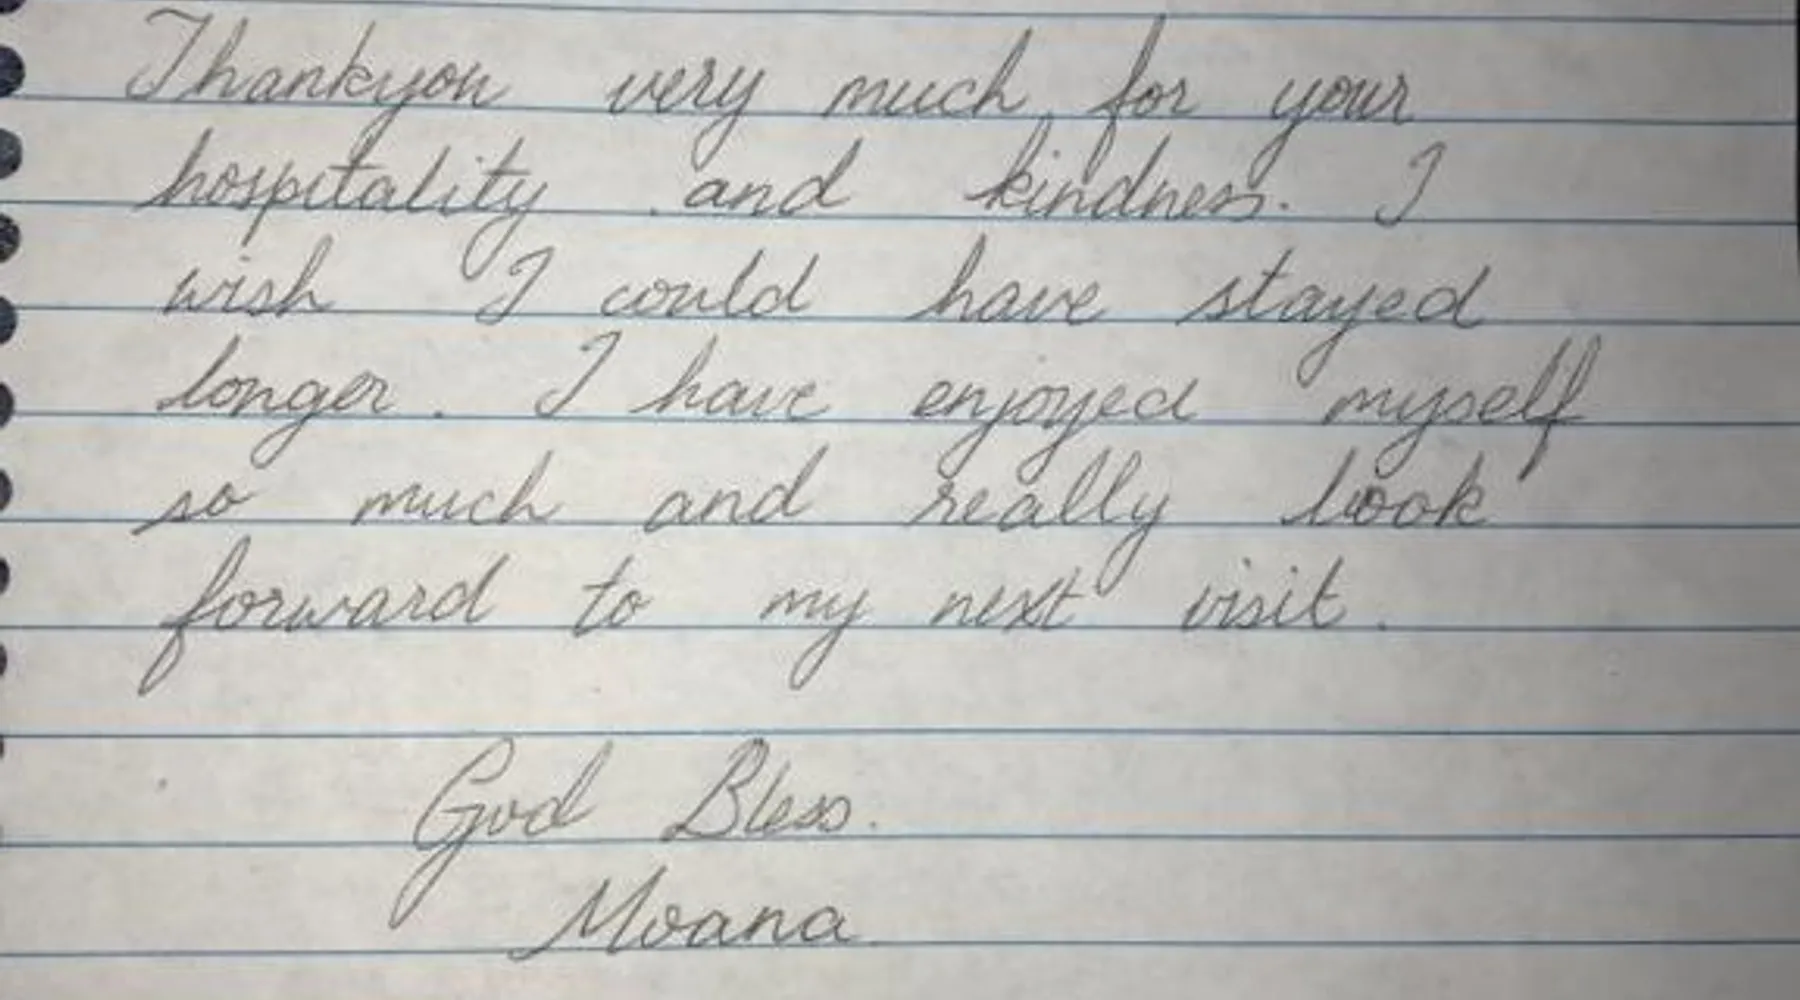 Thankyou very much for your
hospitality and kindness. I
wish I could have stayed
longer. I have enjoyed myself
so much and really look
forward to my next visit.
God Bless.
Moana